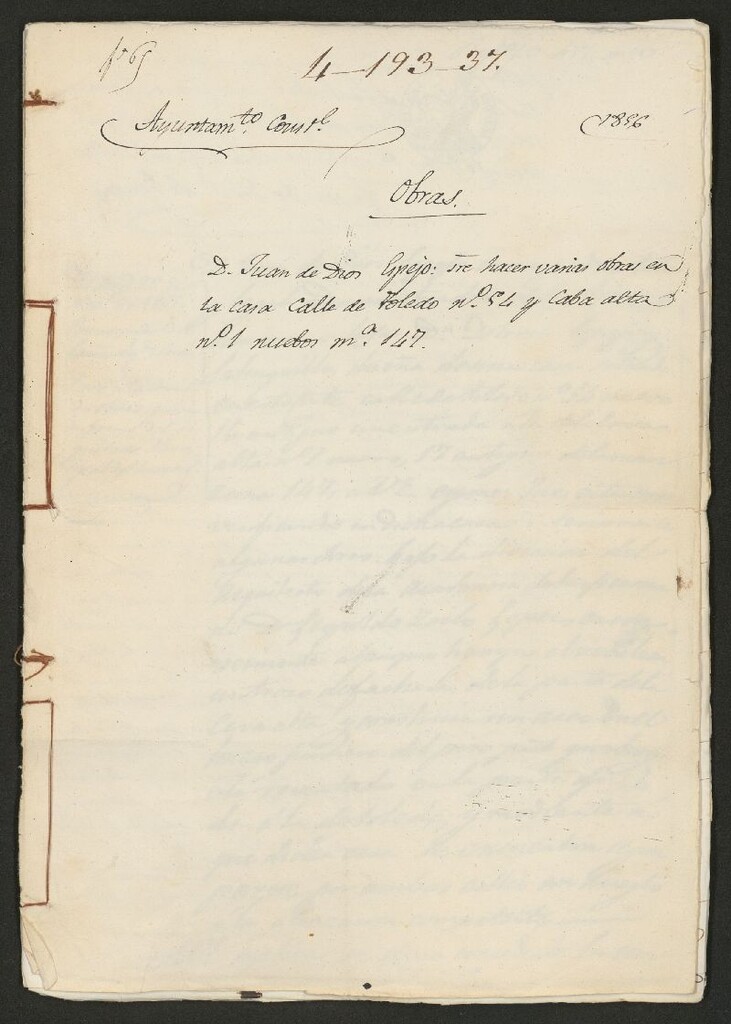 4-193-37.
Ayuntam.to Const.l
1856
Obras.
D. Juan de Dios Espejo: sre hacer varias obras en
la casa Calle de Toledo n.o 54 y Caba alta
n.o 1 nuebos m.a 147.